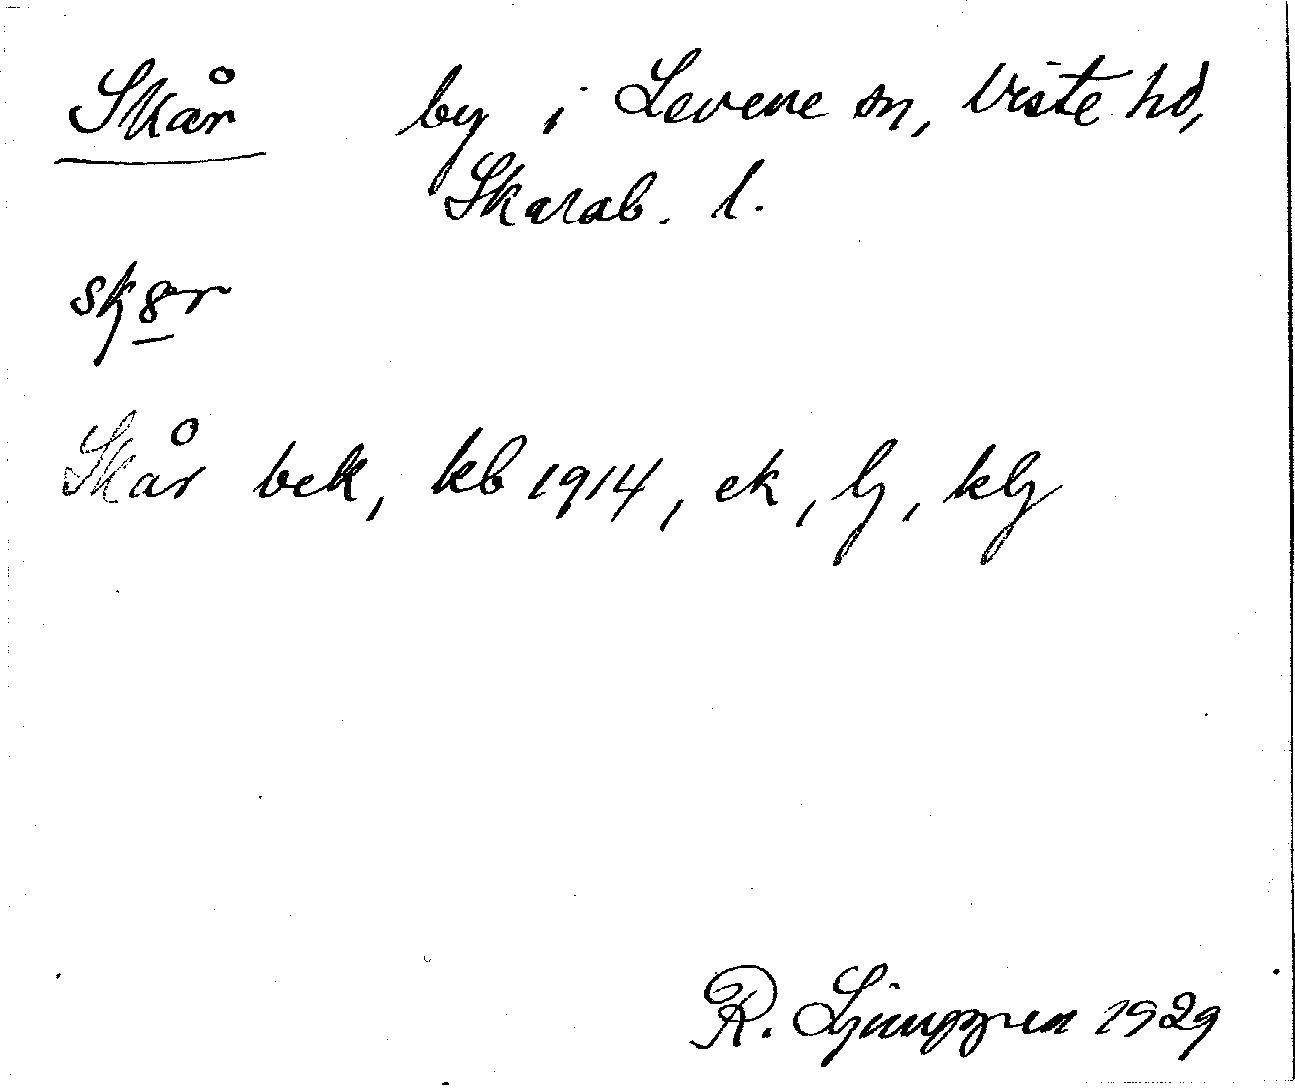 Skår by i Levene sn, Viste hd,
Skarab. l.
Skår bek, kb 1914, ek, lj, klj
R. Ljunggren 1929